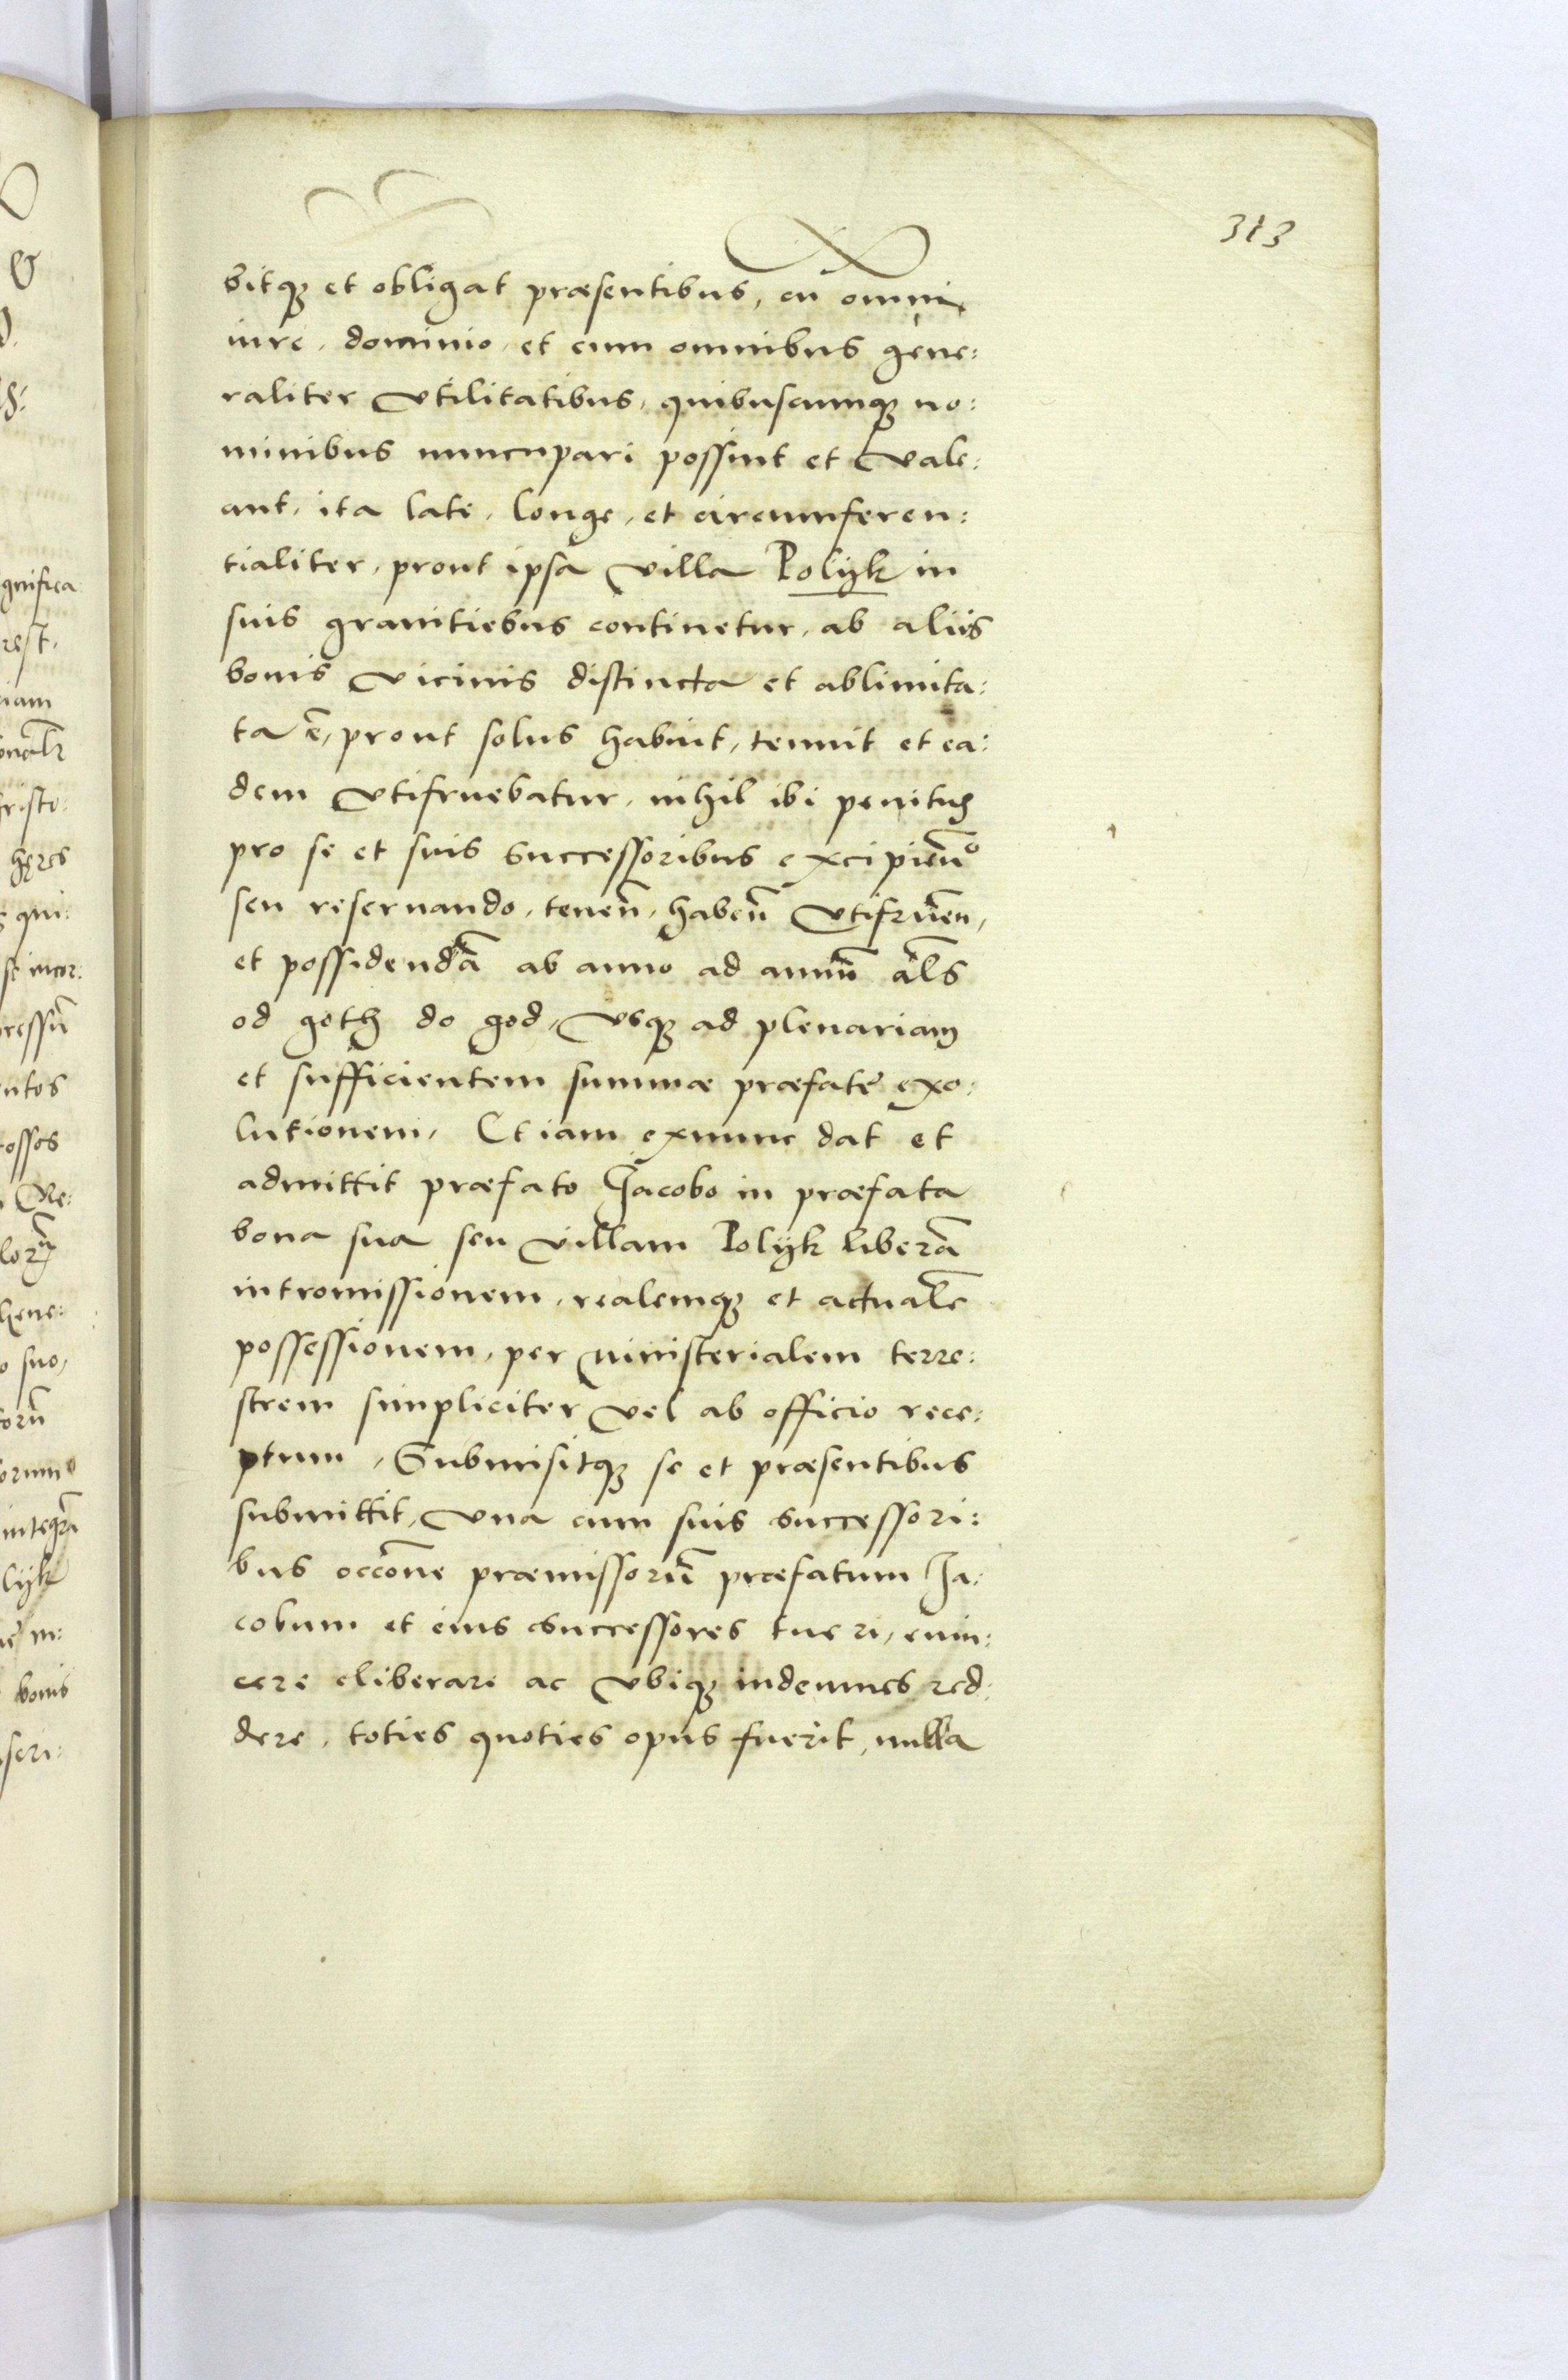 313
bitqꝫ et obligat præsentibus, cū omni
iure, dominio, et cum omnibus gene:
raliter vtilitatibus, quibuscumqꝫ no:
minibus nuncupari possint et vale:
ant, ita late, longe, et circumferen:
tialiter, prout ipsa villa Polijk in
suis granitiebus continetur, ab aliis
bonis vicinis distincta et ablimita:
ta ē, prout solus habuit, tenuit et ea:
dem vtifruebatur, nihil ibi penitus
pro se et suis successoribus excipienō
seu reseruando, tenen̄, haben̄ vtifruen̄,
et possidendā ab anno ad annū al̄s
od goth do god, vsqꝫ ad plenariam
et sufficientem summæ præfatę exo:
lutionem, Etiam exnunc dat et
admittit præfato Jacobo in præfata
bona sua seu villam Polijk liberā
intromissionem, realemqꝫ et actualē
possessionem, per ministerialem terre:
strem simpliciter vel ab officio rece:
ptum, Submisitqꝫ se et præsentibus
submittit, vna cum suis successori:
bus occōne præmissorū præfatum Ja:
cobum et eius successores tueri, euin:
cere eliberare ac vbiqꝫ indemnes red:
dere, toties quoties opus fuerit, nulla